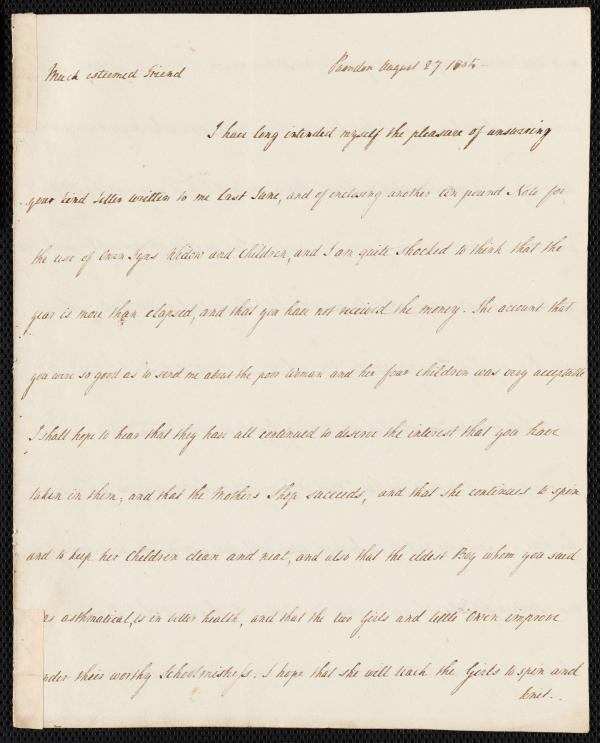 Much esteemed Friend
Parndon August 27
I have long intended myself the pleasure of answering
your kind letter written to me last June, and of enclosing another ten pound Note for
the use of Owen Widow and Children, and I am quite shocked to think that the
year is more than elapsed, and that you have not received the money. The account that
you were so good as to send me about the poor Woman and her four children was very acceptable
I shall hope to hear that they have all continued to deserve the interest that you have
taken in them; and that the Mothers Shop succeeds, and that she continues to spin
and to keep her Children clean and neat, and also that the eldest Boy whom you said
as asthmatical, is in better health, and that the two Girls and little Owen improve
nder their worthy Schoolmistress. I hope that she will teach the Girls to spin and
knit.